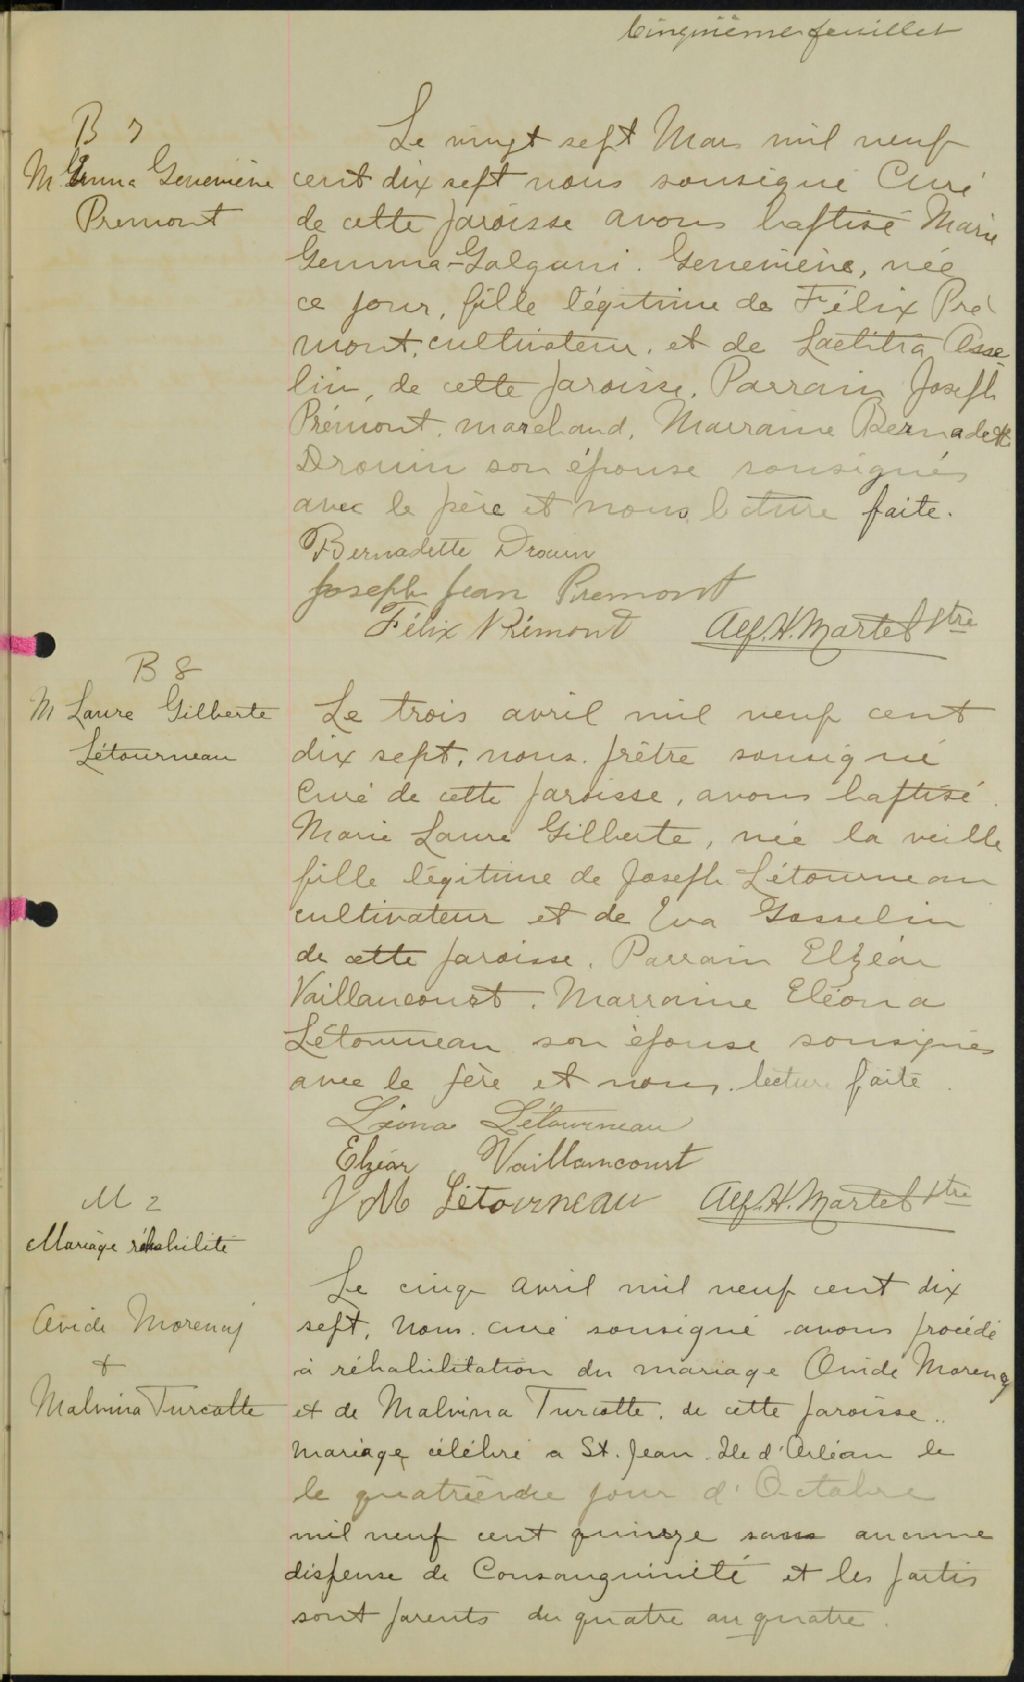 Cinquième feuillet
B 7
M Gemma Geneviève
Prémont
Le vingt sept Mars mil neuf
cent dix sept nous sousigné Curé
de cette paroisse avons baptisé Marie
Gemma-Galgani. Geneviève, née
ce jour, fille légitime de Félix Pré
mont, cultivateur, et de Laetitia Asse
lin, de cette paroisse, Parrain Joseph
Prémont, marchand, Marraine Bernadette
Drouin son épouse sousignés
avec le père et nous, lecture faite.
Bernadette Drouin
Joseph Jean Premont
Félix Prémont Alf. H. Martel Ptre
B 8
M Laure Gilberte
Létourneau
Le trois avril mil neuf cent
dix sept, nous. prêtre sousigné
Curé de cette paroisse, avons baptisé
Marie Laure Gilberte, née la veille
fille légitime de Joseph Létourneau
cultivateur et de Eva Gosselin
de cette paroisse. Parrain Elzéar
Vaillancourt. Marraine Eléona
Létourneau son épouse sousignés
avec le père et nous. lecture faite.
Léona Létourneau
Elzéar Vaillancourt
J M Létourneau Alf. H. Martel Ptre
M 2
Mariage réhabilité
Ovide Morency
+
Malvina Turcotte
Le cinq avril mil neuf cent dix
sept, Nous. curé sousigné avons procédé
à réhabilitation du mariage Ovide Morency
et de Malvina Turcotte. de cette paroisse..
mariage célébré a St. Jean. Ile d'Orléan le
le quatrième jour d'Octobre
mil neuf cent quinze sans aucune
dispense de Consanguinité et les partis
sont parents du quatre au quatre.